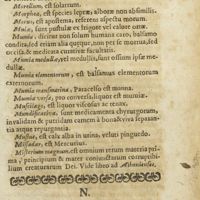 Morellum, est solatrum.
Morphea, est species lepræ, alboræ non absimilis.
Morus, est apostema, referens aspectu morum.
Mulæ, sunt pustulæ ex frigore vel calore ortæ.
Mumia, dicitur non solum humana caro, balsamo
condita, sed etiam alia quæque, non per se mortua, sed
occisa & medicata curativæ facultatis.
Mumia medullæ, vel medullis, sunt ossium ipsæ me-
dullæ.
Mumia elementorum, est balsamus elementorum
externorum.
Mumia transmarina, Paracelso est manna.
Mumia versa, pro conversa, liquor est mumiæ.
Mussilago, est liquor viscosus ac tenax.
Mundificativa, sunt medicamenta abstergorum,
invalidam & putridam carnem à bona & viva separan-
tia atque repurgantia.
est calx alba in urina, veluti pinguedo.
est Mercurius.
Mysterium magnum, est omnium rerum materia pri-
ma, principium & mater coniunctarum corruptibi-
lium creaturarum Dei. Vide libro ad Athenienses,
N.